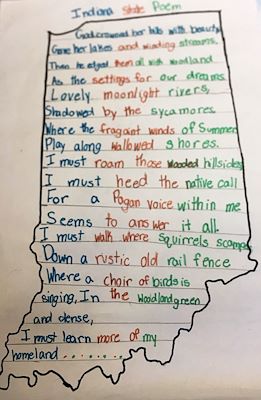 Indiana State Poem
God crowned her hills with beauty,
Gave her lakes and winding streams,
Then he edged them all with woodland
As the settings for our dreams.
Lovely moonlight rivers,
Shadowed by the sycamores
Where the fragant winds of Summer
Play along wallowed shores.
I must roam those wooded hillsides
I must heed the native call
For a Pagan voice within me
Seems to answer it all.
I must walk where squirrels scamper
Down a rustic old rail fence
Where a choir of birds is
singing, In the woodland green
and dense,
I must learn more of my
homeland .......